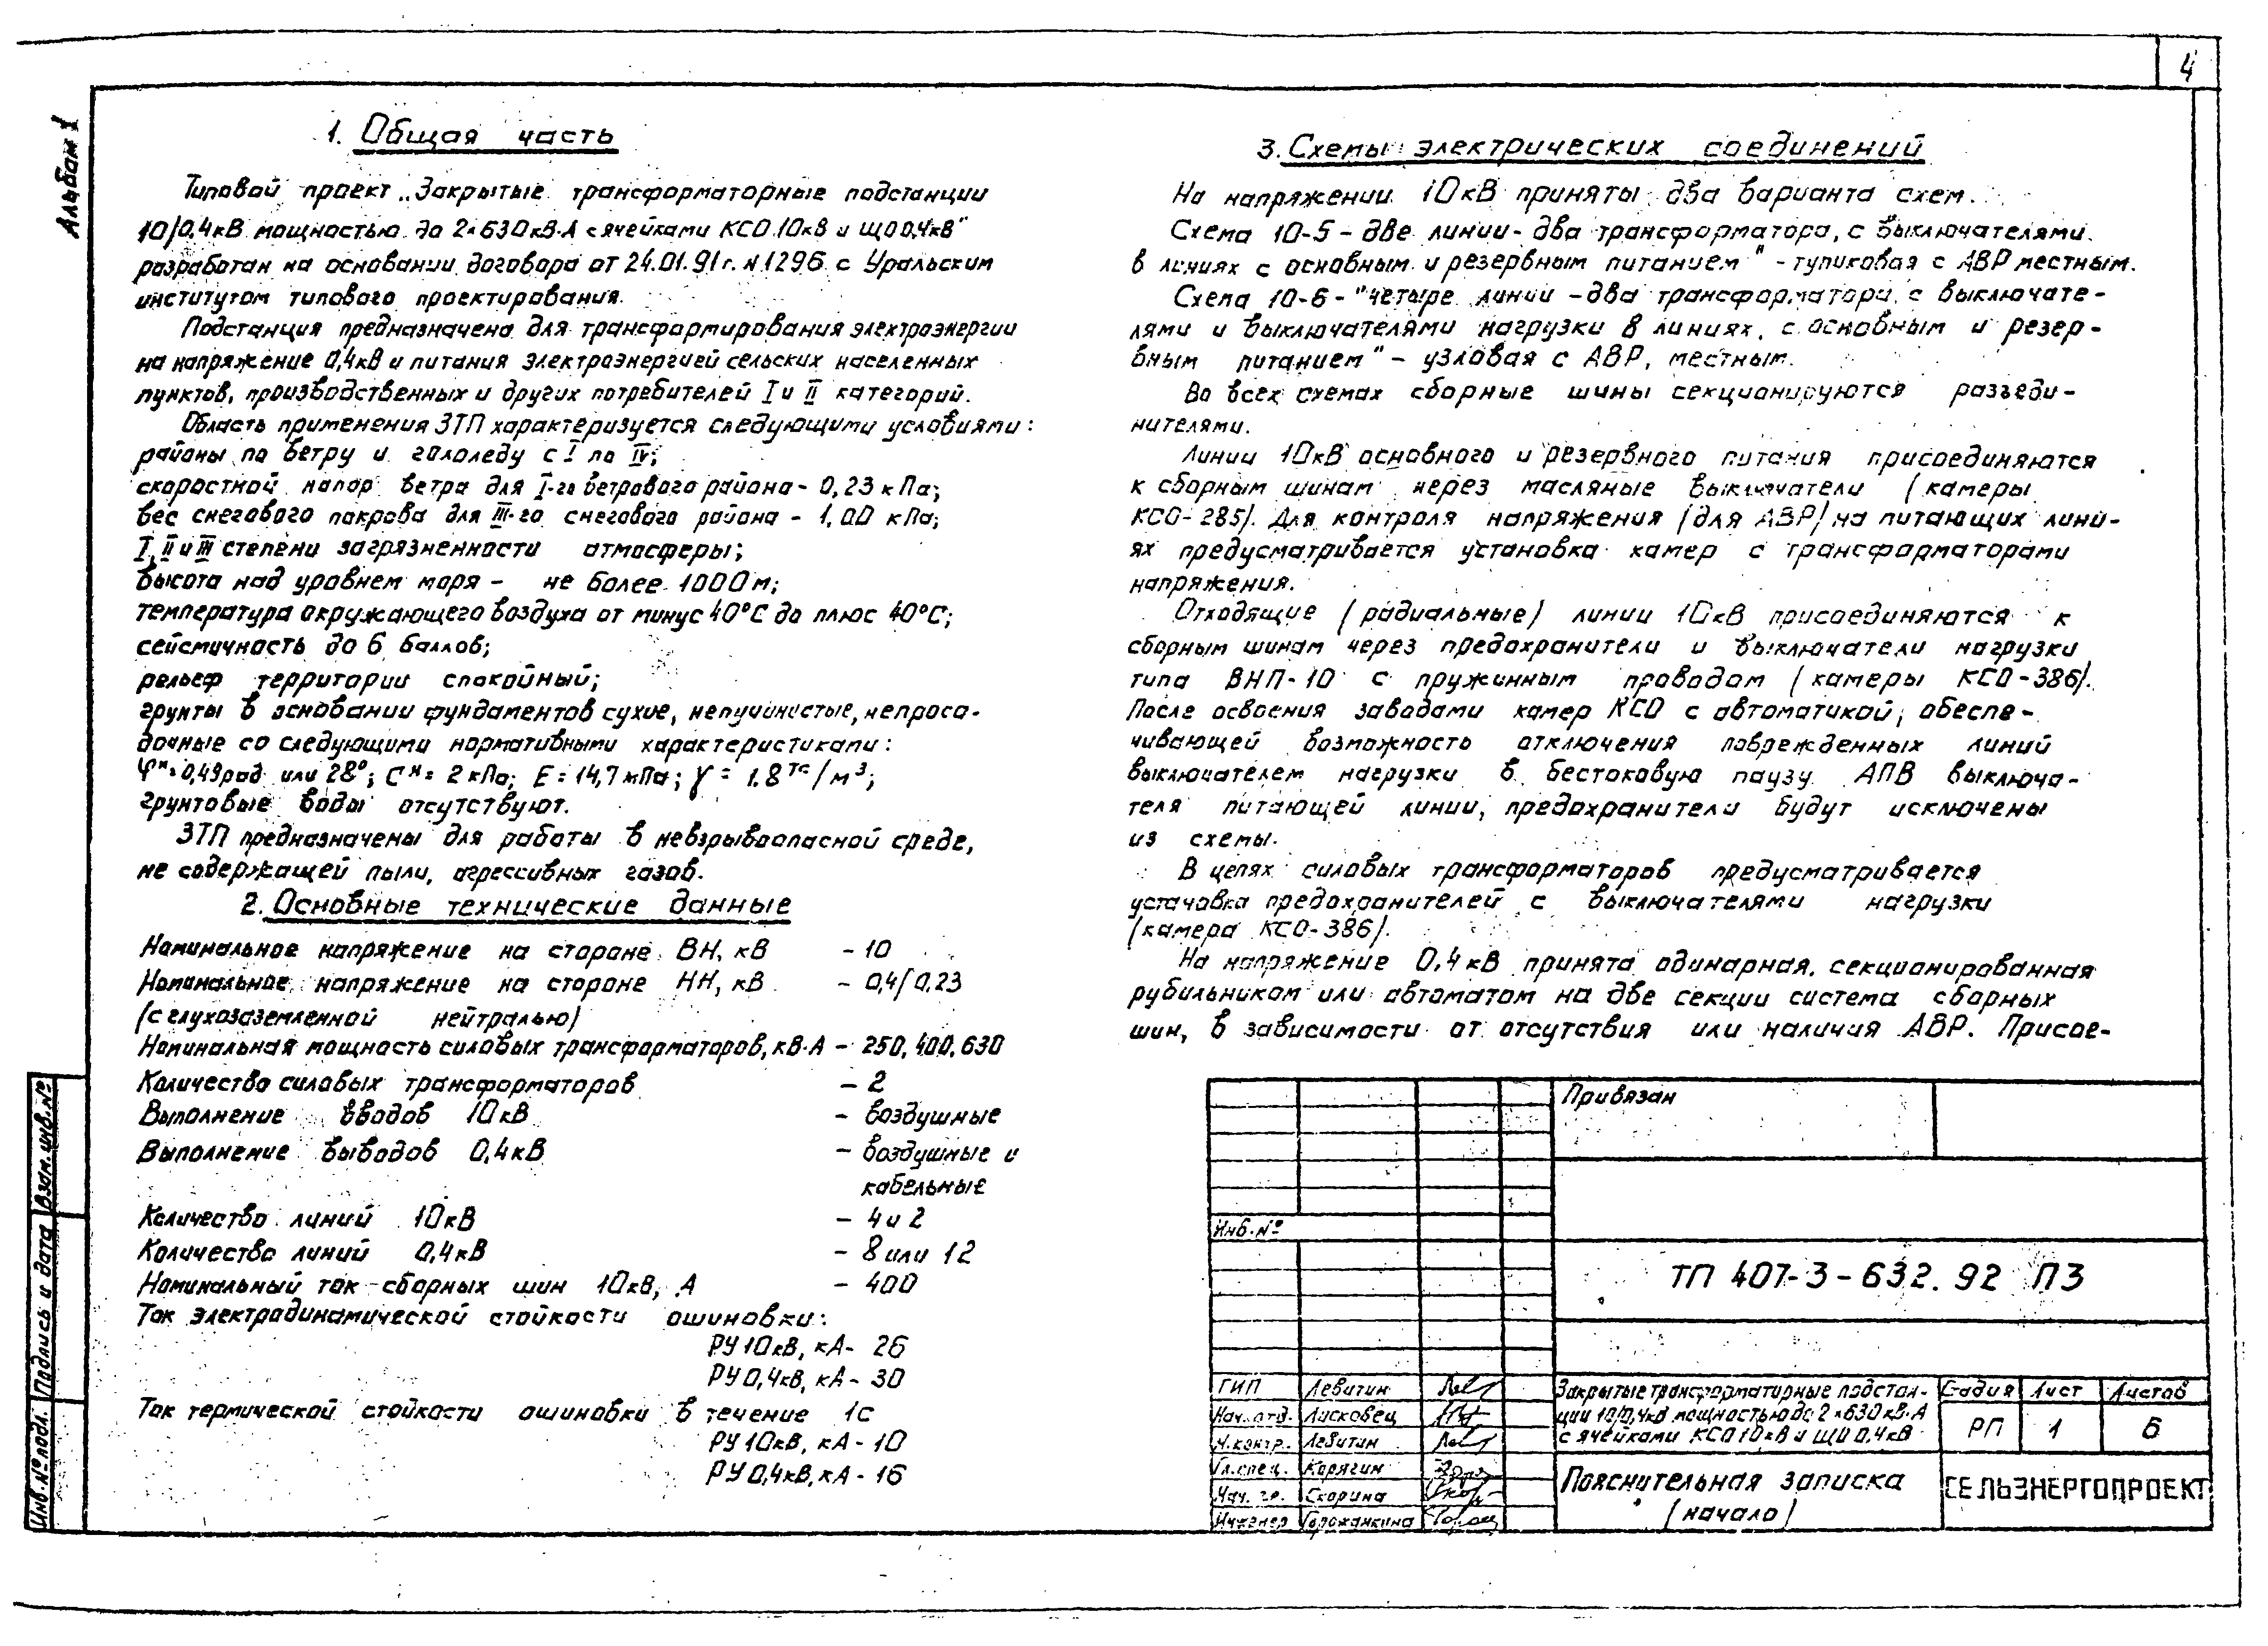 4
Альбом 1
1. Общая часть
Типовой проект „Закрытые трансформаторные подстанции
10/0,4кВ мощностью до 2×630кВ·А с ячейками КСО 10кВ и ЩО 0,4кВ"
разработан на основании договора от 24.01.91г. №1296 с Уральским
институтом типового проектирования.
Подстанция предназначена для трансформирования электроэнергии
на напряжение 0,4кВ и питания электроэнергией сельских населенных
пунктов, производственных и других потребителей I и II категорий.
Область применения ЗТП характеризуется следующими условиями:
районы по ветру и гололеду с I по IV;
скоростной напор ветра для I-го ветрового района - 0,23 кПа;
вес снегового покрова для III-го снегового района - 1,00 кПа;
I, II и III степени загрязненности атмосферы;
высота над уровнем моря - не более 1000м;
температура окружающего воздуха от минус 40°С до плюс 40°С;
сейсмичность до 6 баллов;
рельеф территории спокойный;
грунты в основании фундаментов сухие, непучинистые, непроса-
дочные со следующими нормативными характеристиками:
φн=0,49рад или 28°; Сн= 2 кПа; Е = 14,7 мПа; γ = 1.8 тс/м³;
грунтовые воды отсутствуют.
ЗТП предназначены для работы в невзрывоопасной среде,
не содержащей пыли, агрессивных газов.
2. Основные технические данные
Номинальное напряжение на стороне ВН, кВ - 10
Номинальное напряжение на стороне НН, кВ - 0,4/0,23
(с глухозаземленной нейтралью)
Номинальная мощность силовых трансформаторов, кВ·А - 250, 400, 630
Количество силовых трансформаторов - 2
Выполнение вводов 10кВ - воздушные
Выполнение выводов 0,4кВ - воздушные и
кабельные
Количество линий 10кВ - 4 и 2
Количество линий 0,4кВ - 8 или 12
Номинальный ток сборных шин 10кВ, А - 400
Ток электродинамической стойкости ошиновки:
РУ 10кВ, кА - 26
РУ 0,4кВ, кА - 30
Ток термической стойкости ошиновки в течение 1с
РУ 10кВ, кА - 10
РУ 0,4кВ, кА - 16
3. Схемы электрических соединений
На напряжении 10кВ приняты два варианта схем.
Схема 10-5 - две линии - два трансформатора, с выключателями
в линиях с основным и резервным питанием" - тупиковая с АВР местным.
Схепа 10-6 - "четыре линии - два трансформатора, с выключате-
лями и выключателями нагрузки в линиях, с основным и резер-
вным питанием" - узловая с АВР, местным.
Во всех схемах сборные шины секционируются разъеди-
нителями.
Линии 10кВ основного и резервного питания присоединяются
к сборным шинам через масляные выключатели (камеры
КСО-285). Для контроля напряжения (для АВР) на питающих лини-
ях предусматривается установка камер с трансформаторами
напряжения.
Отходящие (радиальные) линии 10кВ присоединяются к
сборным шинам через предохранители и выключатели нагрузки
типа ВНП-10 с пружинным проводом (камеры КСО-386).
После освоения заводами камер КСО с автоматикой, обеспе-
чивающей возможность отключения поврежденных линий
выключателем нагрузки в бестоковую паузу АПВ выключа-
теля питающей линии, предохранители будут исключены
из схемы.
В цепях силовых трансформаторов предусматривается
установка предохранителей с выключателями нагрузки
(камера КСО-386).
На напряжение 0,4кВ принята одинарная, секционированная
рубильником или автоматом на две секции система сборных
шин, в зависимости от отсутствия или наличия АВР. Присое-
Привязан
Инв.№
ТП 407-3-632.92 ПЗ
ГИП Левитин
Нач. отд. Лисковец
Н.контр. Левитин
Гл.спец. Карягин
Нач. гр. Скорина
Инженер Горожанкина
Закрытые трансформаторные подстан-
ции 10/0,4кВ мощностью до 2×630кВ·А
с ячейками КСО 10кВ и ЩО 0,4кВ
Стадия Лист Листов
РП 1 6
Пояснительная записка
(начало)
СЕЛЬЭНЕРГОПРОЕКТ
Инв.№ подл. Подпись и дата Взам.инв.№